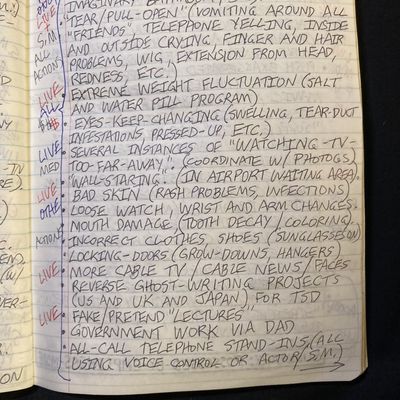 IMAGINARY
"TEAR/PULL-OPEN" (VOMITING AROUND ALL
"FRIENDS", TELEPHONE YELLING, INSIDE
AND OUTSIDE CRYING, FINGER AND HAIR
PROBLEMS, WIG, EXTENSION FROM HEAD,
REDNESS, ETC.)
LIVE EXTREME WEIGHT FLUCTUATION (SALT
AND WATER PILL PROGRAM)
• EYES-KEEP-CHANGING (SWELLING, TEAR-DUCT
INFESTATIONS, PRESSED-UP, ETC.)
LIVE • SEVERAL INSTANCES OF "WATCHING-TV-
MED TOO-FAR-AWAY". (COORDINATE W/ PHOTOGS)
• "WALL-STARING". (IN AIRPORT WAITING AREA).
LIVE • BAD SKIN (RASH PROBLEMS, INFECTIONS)
OTHE • LOOSE WATCH, WRIST AND ARM CHANGES.
MOUTH DAMAGE (TOOTH DECAY / COLORING).
ACTIONS • INCORRECT CLOTHES, SHOES (SUNGLASSES ON)
• LOCKING-DOORS (GROW-DOWNS, HANGERS)
LIVE • MORE CABLE TV / CABLE NEWS / FACES
REVERSE GHOST-WRITING PROJECTS
(US AND UK AND JAPAN) FOR TSD
LIVE • FAKE/PRETEND "LECTURES"
• GOVERNMENT WORK VIA DAD
• ALL-CALL TELEPHONE STAND-INS (ALL
USING VOICE CONTROL OR ACTOR/S.M.)